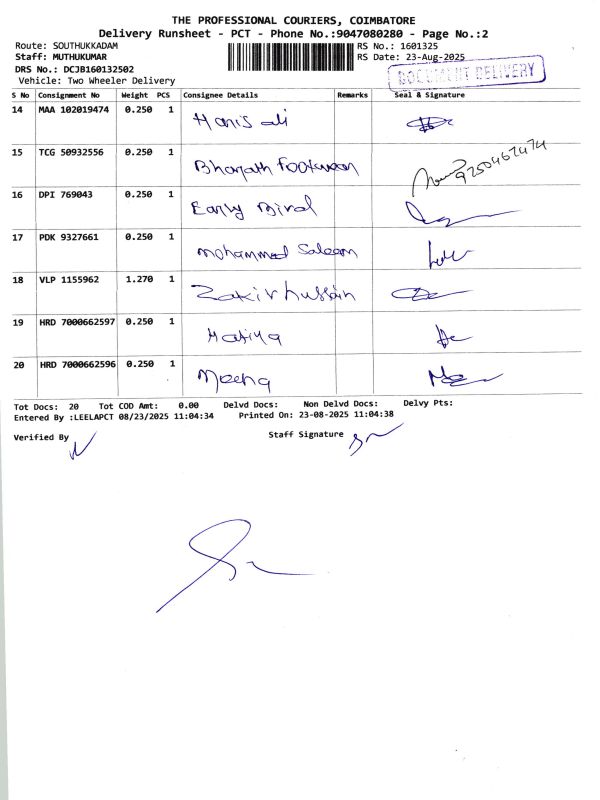 THE PROFESSIONAL COURIERS, COIMBATORE
Delivery Runsheet - PCT - Phone No.:9047080280 - Page No.:2
Route: SOUTHUKKADAM RS No.: 1601325
Staff: MUTHUKUMAR RS Date: 23-Aug-2025
DRS No.: DCJB160132502
DOCUMENT DELIVERY
Vehicle: Two Wheeler Delivery
S No Consignment No Weight PCS Consignee Details Remarks Seal & Signature
14 MAA 102019474 0.250 1 Hanis ali
15 TCG 50932556 0.250 1 Bharath Footwear 9250467474
16 DPI 769043 0.250 1 Early Biral
17 PDK 9327661 0.250 1 Mohammed Saleem
18 VLP 1155962 1.270 1 Zakir hussain
19 HRD 7000662597 0.250 1
20 HRD 7000662596 0.250 1 Meena
Tot Docs: 20 Tot COD Amt: 0.00 Delvd Docs: Non Delvd Docs: Delvy Pts:
Entered By :LEELAPCT 08/23/2025 11:04:34 Printed On: 23-08-2025 11:04:38
Verified By Staff Signature